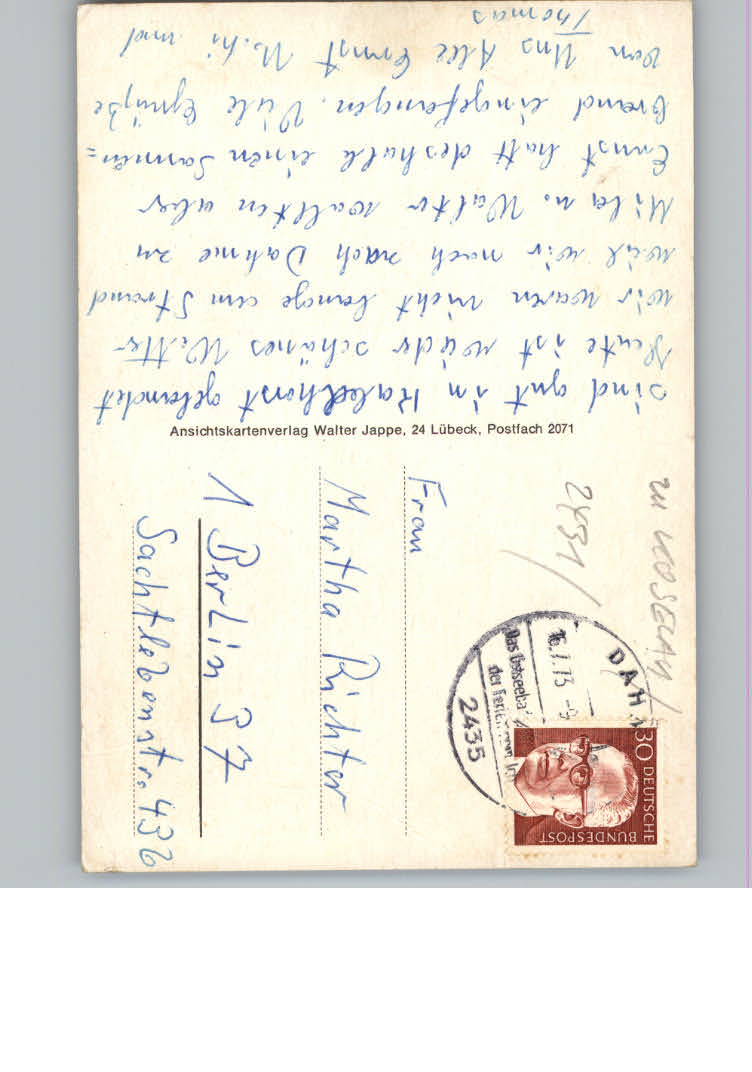 sind gut in Kaledhorst gelandet
Heute ist wieder schönes Wetter
wir waren nicht lange am Strand
weil wir noch nach Dahme zu
u. Walter wollten aber
Ernst hatt deshalb einen Sonnen=
brand eingefangen. Viele Grüße
von Uns Alle Ernst Michi und
Thomas
Ansichtskartenverlag Walter Jappe, 24 Lübeck, Postfach 2071
Frau
Martha Richter
1 Berlin 37
Sachtlebenstr. 43b
2431
zu
DAHM
16.7.73 -9
Das Ostseebad
der Ferien
2435
30 DEUTSCHE
BUNDESPOST